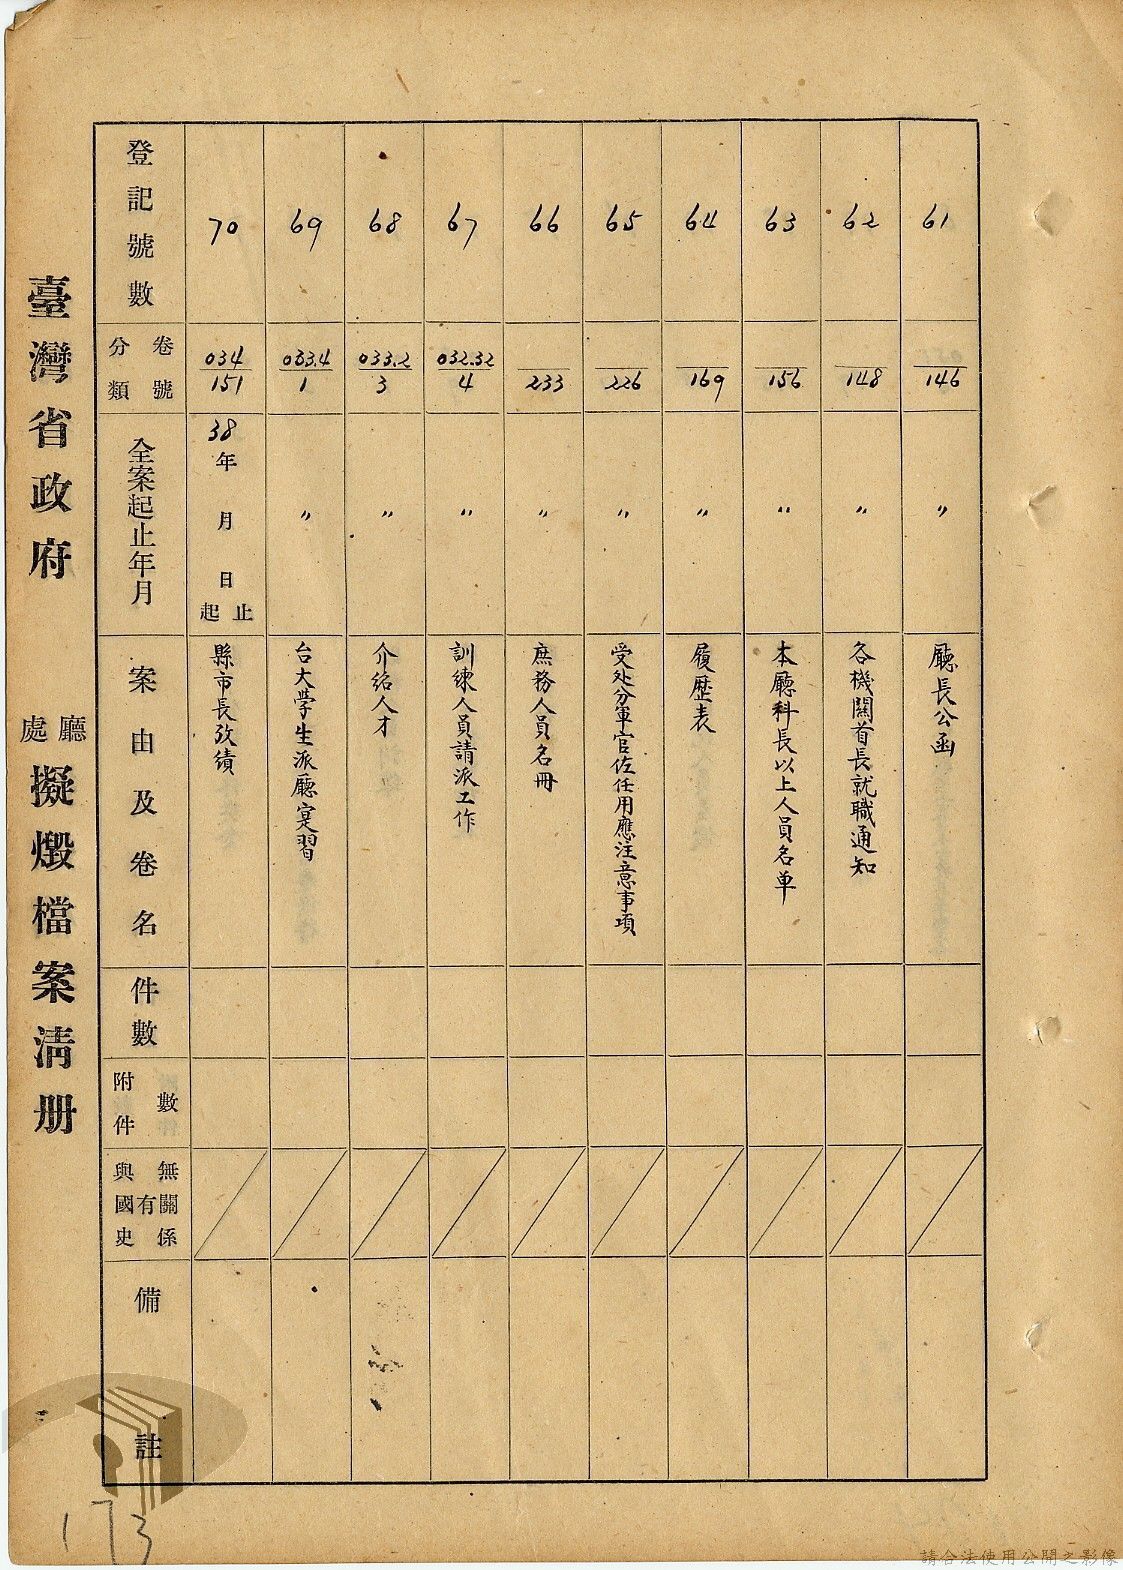 臺灣省政府 廳處擬燬檔案清册
登記號數
分類卷號
全案起止年月
案由及卷名
件數
附件數
與國史有無關係
備註
70
034/151
38年 月 日起止
縣市長攷績
69
033.4/1
〃
台大學生派廳寔習
68
033.2/3
〃
介紹人才
67
032.32/4
〃
訓練人員請派工作
66
233
〃
庶務人員名冊
65
226
〃
受处分軍官佐任用應注意事項
64
169
〃
履歷表
63
156
〃
本廳科長以上人員名单
62
148
〃
各機關首長就職通知
61
146
〃
廳長公函
173
請合法使用公開之影像